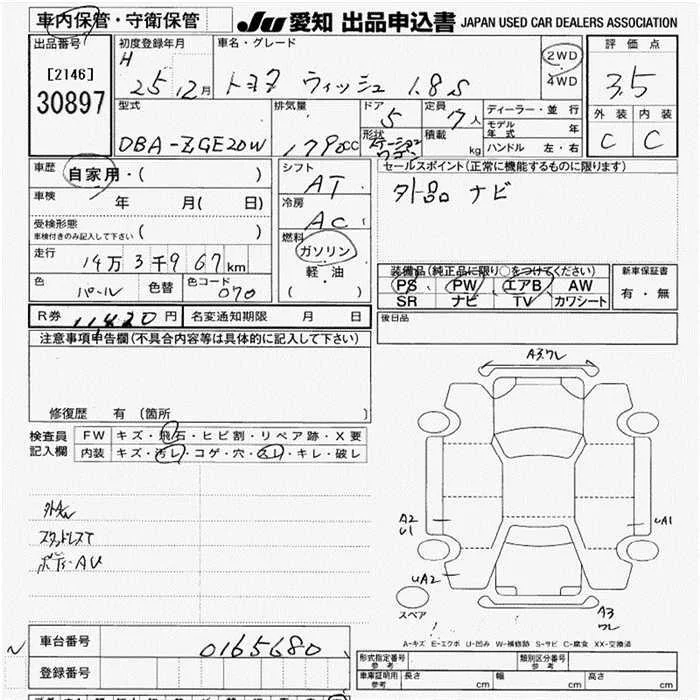 車内保管・守衛保管
JU 愛知 出品申込書 JAPAN USED CAR DEALERS ASSOCIATION
出品番号
[2146]
30897
初度登録年月
H
25年12月
車名・グレード
トヨタ ウィッシュ 1.8S
2WD
4WD
評価点
3.5
外装 内装
C C
型式
DBA-ZGE20W
排気量
1790cc
ドア
5
形状
定員
7人
積載
kg
ディーラー・並行
モデル年式 年
ハンドル 左・右
車歴
自家用・( )
車検
年 月( 日)
受検形態
車検付きのみ記入して下さい ( )
走行
14万3千967km
色
パール
色替
色コード
070
シフト
AT
冷房
AC
燃料
ガソリン
軽・油
( )
セールスポイント(正常に機能するものに限ります)
外品 ナビ
装備品(純正品に限り○をつけてください)
PS PW エアB AW
SR ナビ TV カワシート
新車保証書
有・無
R券 11420円
名変通知期限 月 日
後日品
注意事項申告欄(不具合内容等は具体的に記入して下さい)
修復歴 有 (箇所 )
検査員
記入欄
FW キズ・飛石・ヒビ割・リペア跡・X要
内装 キズ・汚レ・コゲ・穴・スレ・キレ・破レ
外AW
スタッドレスT
ボデーAU
A3.ワレ
A2
U1
UA1
UA2
スペア
A3
ワレ
A-キズ E-エクボ U-凹み W-補修跡 S-サビ C-腐食 XX-交換済
車台番号
0165680
登録番号
形式指定番号
参考
類別区分番号
参考
車庫証明用
参考
長さ cm
幅 cm
高さ cm